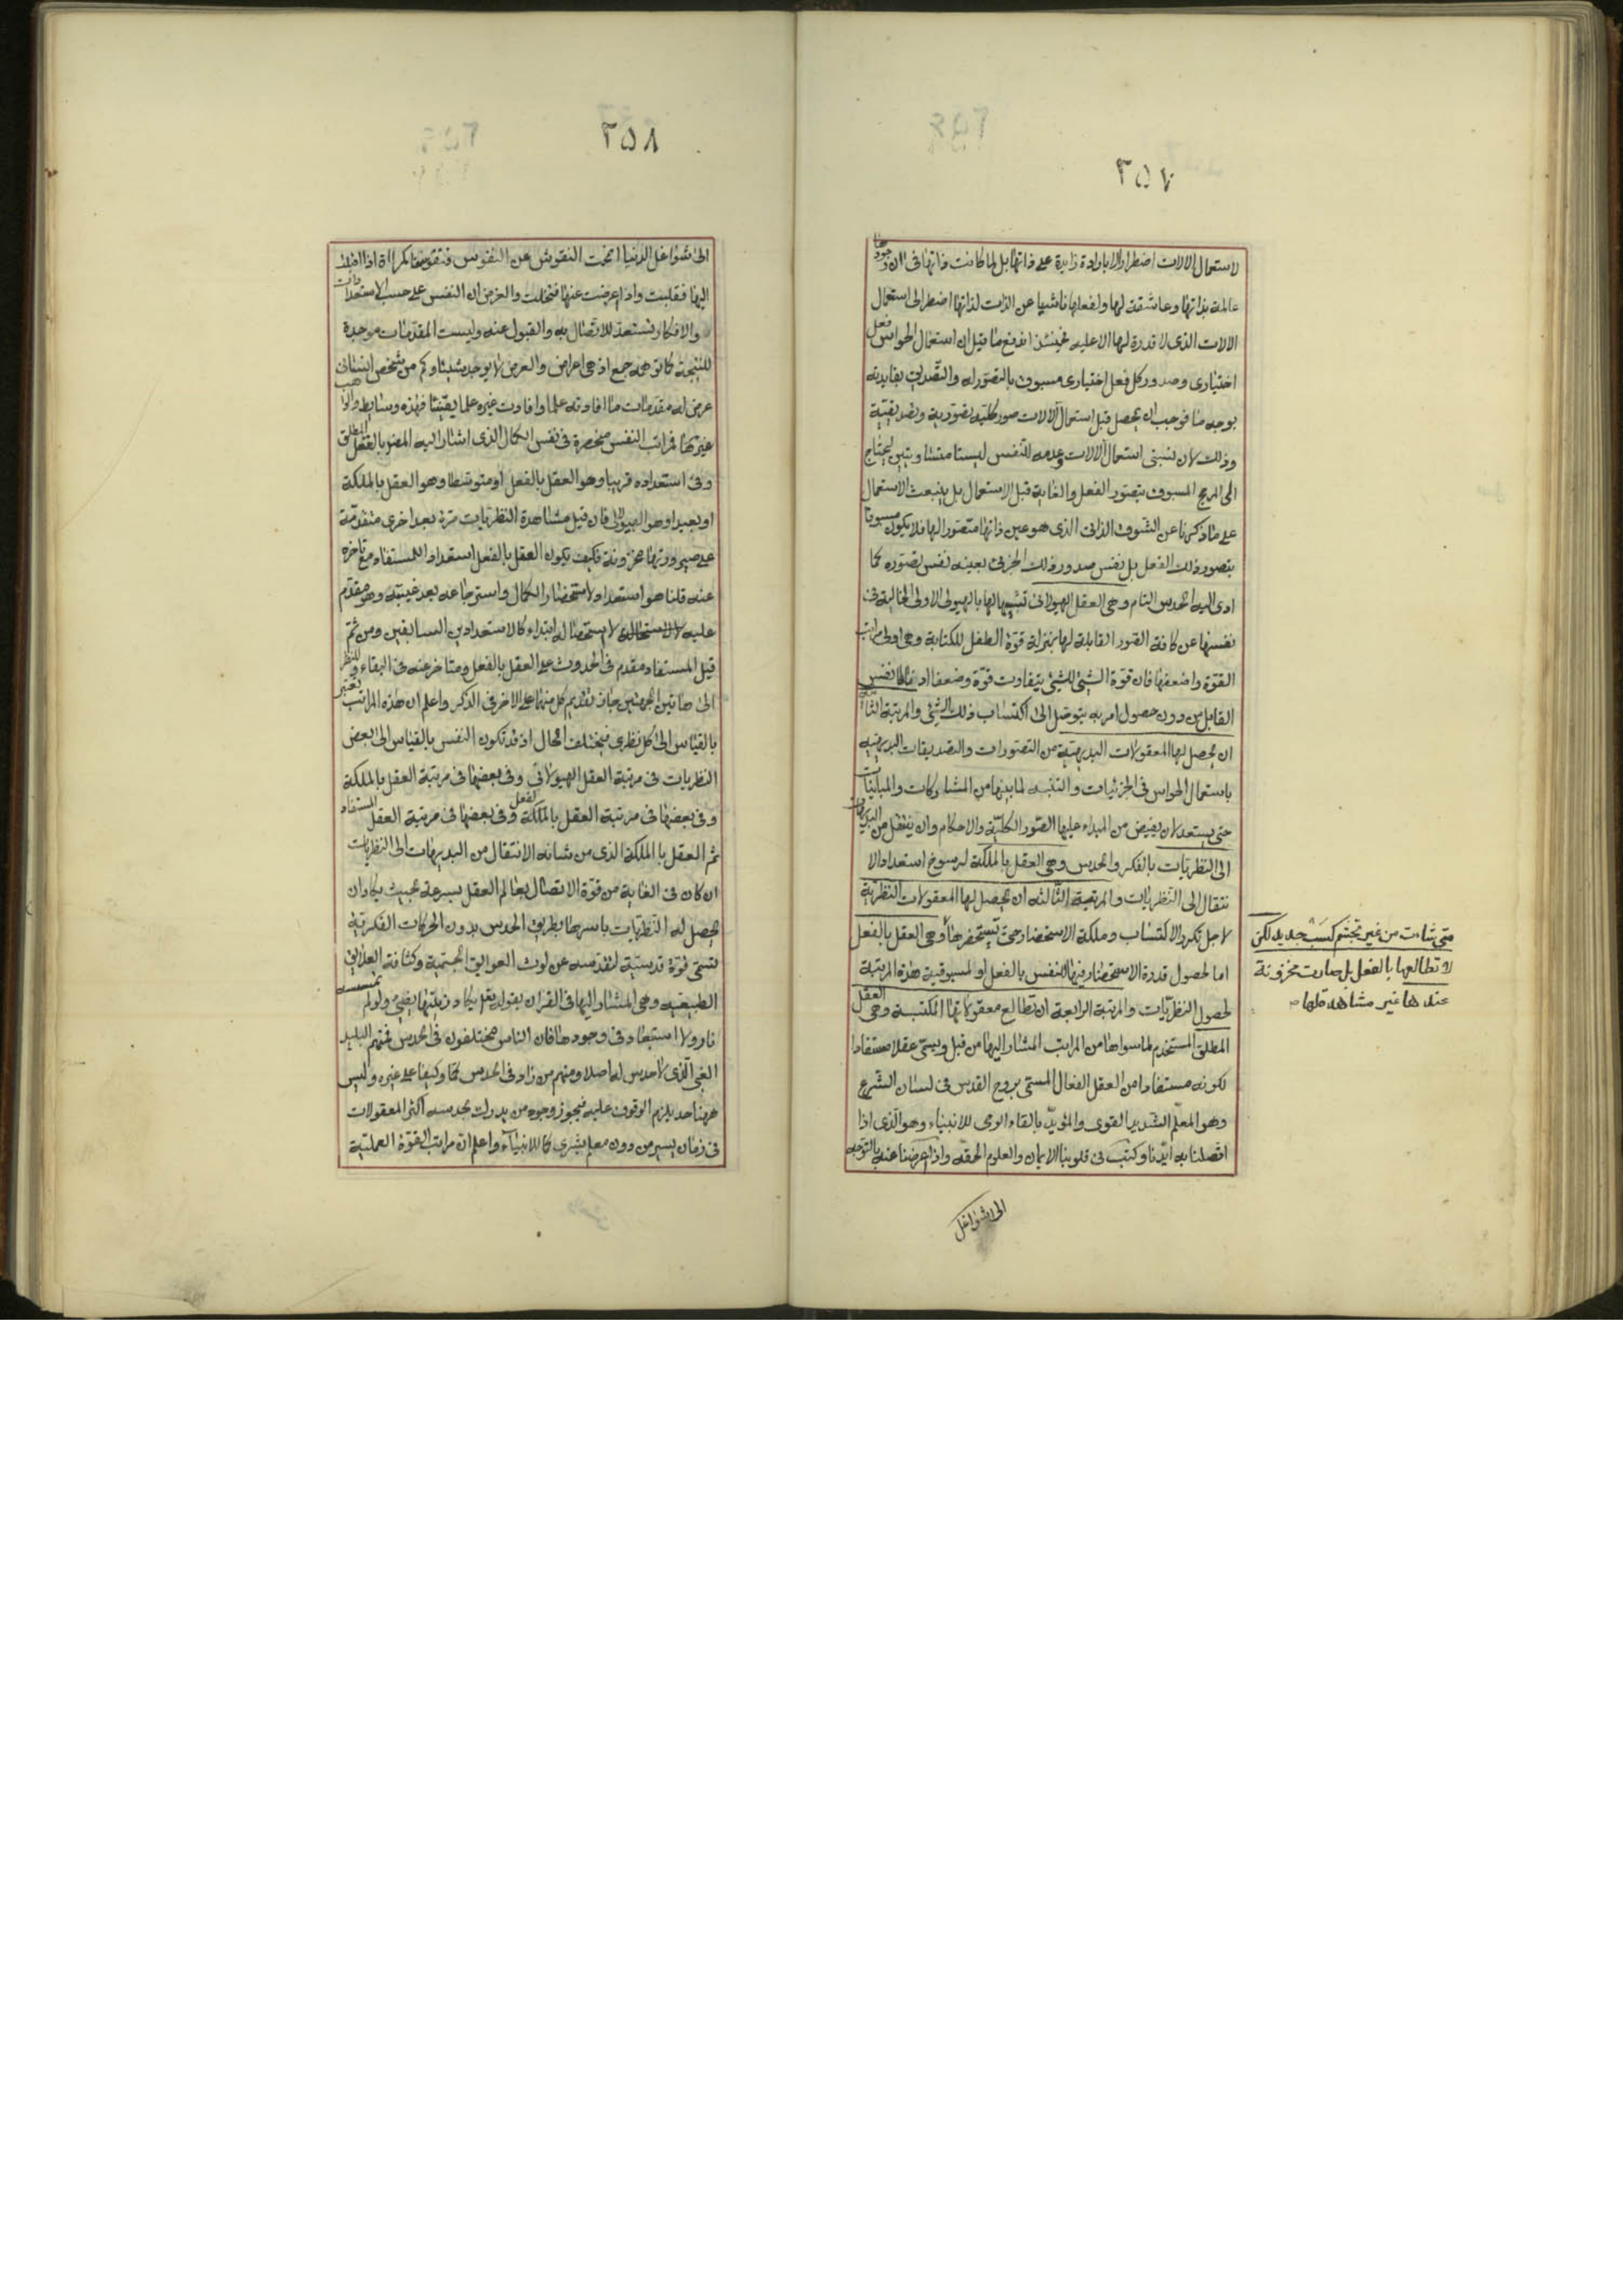 ٢٥٧
لاستعمال الالات اضطرارا لا بارادة زايدة على ذاتها بل لما كانت ذاتها فى ان وجودها
عالمة بذاتها وعاشقة لها ولفعلها ناشيا عن الذات لذاتها اضطر الى استعمال
الالات الذى لا قدرة لها الا عليه فحينئذ اندفع ما قيل ان استعمال الحواس فعل
اختيارى وصدور كل فعل اختيارى مسبوق بالتصور له والتصديق بفايدته
بوجه ما فوجب ان يحصل قبل استعمال الالات صور كلية تصورية وتصديقية
وذلك لان نسبتى استعمال الالات وعدمه للنفس ليستا متساويتين ليحتاج
الى المرجح المسبوق بتصور الفعل والغاية قبل الاستعمال بل ينبعث الاستعمال
على ما ذكرنا عن الشوق الذاتى الذى هو عين ذاتها متصورا لها فلا يكون مسبوقا
بتصور ذلك الفعل بل نفس صدور ذلك الجزئى بعينه نفس تصوره كما
ادى اليه الحدس التام وهى العقل الهيولانى تشبيها لها بالهيولى الاولى الخالية فى
نفسها عن كافة الصور القابلة لها بمنزلة قوة الطفل للكتابة وهى اولى مراتب
القوة واضعفها فان قوة الشئ للشئ يتفاوت قوة وضعفا
القابل من دون حصول امر به يتوصل الى اكتساب ذلك الشئ والمرتبة الثانية
ان يحصل لها المعقولات البديهية من التصورات والتصديقات البديهية
باستعمال الحواس فى الجزئيات والتنبه لما بينها من المشاركات والمباينات
حتى يستعد لان يفيض من المبداء عليها الصور الكلية والاحكام وان ينتقل من البديهيات
الى النظريات بالفكر والحدس وهى العقل بالملكة لرسوخ استعداد الا
نتقال الى النظريات والمرتبة الثالثة ان يحصل لها المعقولات النظرية
لاجل تكرر الاكتساب وملكة الاستحضار حتى تستحضرها وهى العقل بالفعل
اما لحصول قدرة الاستحضار فيها للنفس بالفعل او لمسبوقية هذه المرتبة
لحصول النظريات والمرتبة الرابعة ان تطالع معقولاتها المكتسبة وهى العقل
المطلق المستخدم لما سواها من المراتب المشار اليها من قبل ويسمى عقلا مستفادا
لكونه مستفادا من العقل الفعال المسمى بروح القدس فى لسان الشرع
وهو المعلم الشديد القوى والمؤيد بالقاء الوحى للانبياء وهو الذى اذا
اتصلنا به ايدنا وكتب فى قلوبنا الايمان والعلوم الحقة واذا اعرضنا عنه بالتوجه
الى شواغل
متى شاءت من غير تجشم كسب جديد لكن
لا تطالعها بالفعل بل صارت مخزونة
عندها غير مشاهدة لها
٢٥٨
الى شواغل الدنيا انمحت النقوش عن النفوس اذا اقبلت
اليها فقابلت واذا اعرضت عنها فتخلت والغرض ان النفس على حسب الاستعدادات
والافكار تستعد للاتصال به والقبول عنه وليست المقدمات موجدة
للنتيجة كما توهمه جمع اذ هى اعراض والعرض لا يوجد شيئا وكم من شخص انسانى
عرض له مقدمات ما افادته علما وافادت غيره علما يقينيا فهذه وسايط والواهب
غيرها فمراتب النفس منحصرة فى نفس الكمال الذى اشار اليه المص بالعقل المطلق
وفى استعداده قريبا وهو العقل بالفعل او متوسطا وهو العقل بالملكة
او بعيدا وهو الهيولانى فان قيل مشاهدة النظريات مرة بعد اخرى متقدمة
على صيرورتها مخزونة فكيف يكون العقل بالفعل استعدادا للمستفاد مع تاخره
عنه قلنا هو استعداد لاستحضار الكمال واسترجاعه بعد غيبته وهو مقدم
عليه لا لاستحصاله ابتداء كالاستعدادين السابقين ومن ثم
قيل المستفاد مقدم فى الحدوث على العقل بالفعل ومتاخر عنه فى البقاء وللنظر
الى هاتين الجهتين جاز تقديم كل منهما على الاخر فى الذكر واعلم ان هذه المراتب تعتبر
بالقياس الى كل نظرى فيختلف الحال اذ قد تكون النفس بالقياس الى بعض
النظريات فى مرتبة العقل الهيولانى وفى بعضها فى مرتبة العقل بالملكة
وفى بعضها فى مرتبة العقل بالفعل وفى بعضها فى مرتبة العقل المستفاد
ثم العقل بالملكة الذى من شانه الانتقال من البديهيات الى النظريات
ان كان فى الغاية من قوة الاتصال بعالم العقل بسرعة بحيث يكاد ان
يحصل له النظريات باسرها بطريق الحدس بدون الحركات الفكرية
تسمى قوة قدسية لتقدسه عن لوث العوايق الجسمية وكثافة العلايق
الطبيعية وهى المشار اليها فى القران بقوله تعم يكاد زيتها يضئ ولو لم تمسسه
نار ولا استبعاد فى وجودها فان الناس مختلفون فى الحدس فمنهم البليد
الغبى الذى لا حدس له اصلا ومنهم من زاد فى الحدس كما وكيفا على غيره وليس
ههنا حد يلزم الوقوف عليه فيجوز وجود من يدرك بحدسه اكثر المعقولات
فى زمان يسير من دون معلم بشرى كما للانبياء واعلم ان مراتب القوة العملية